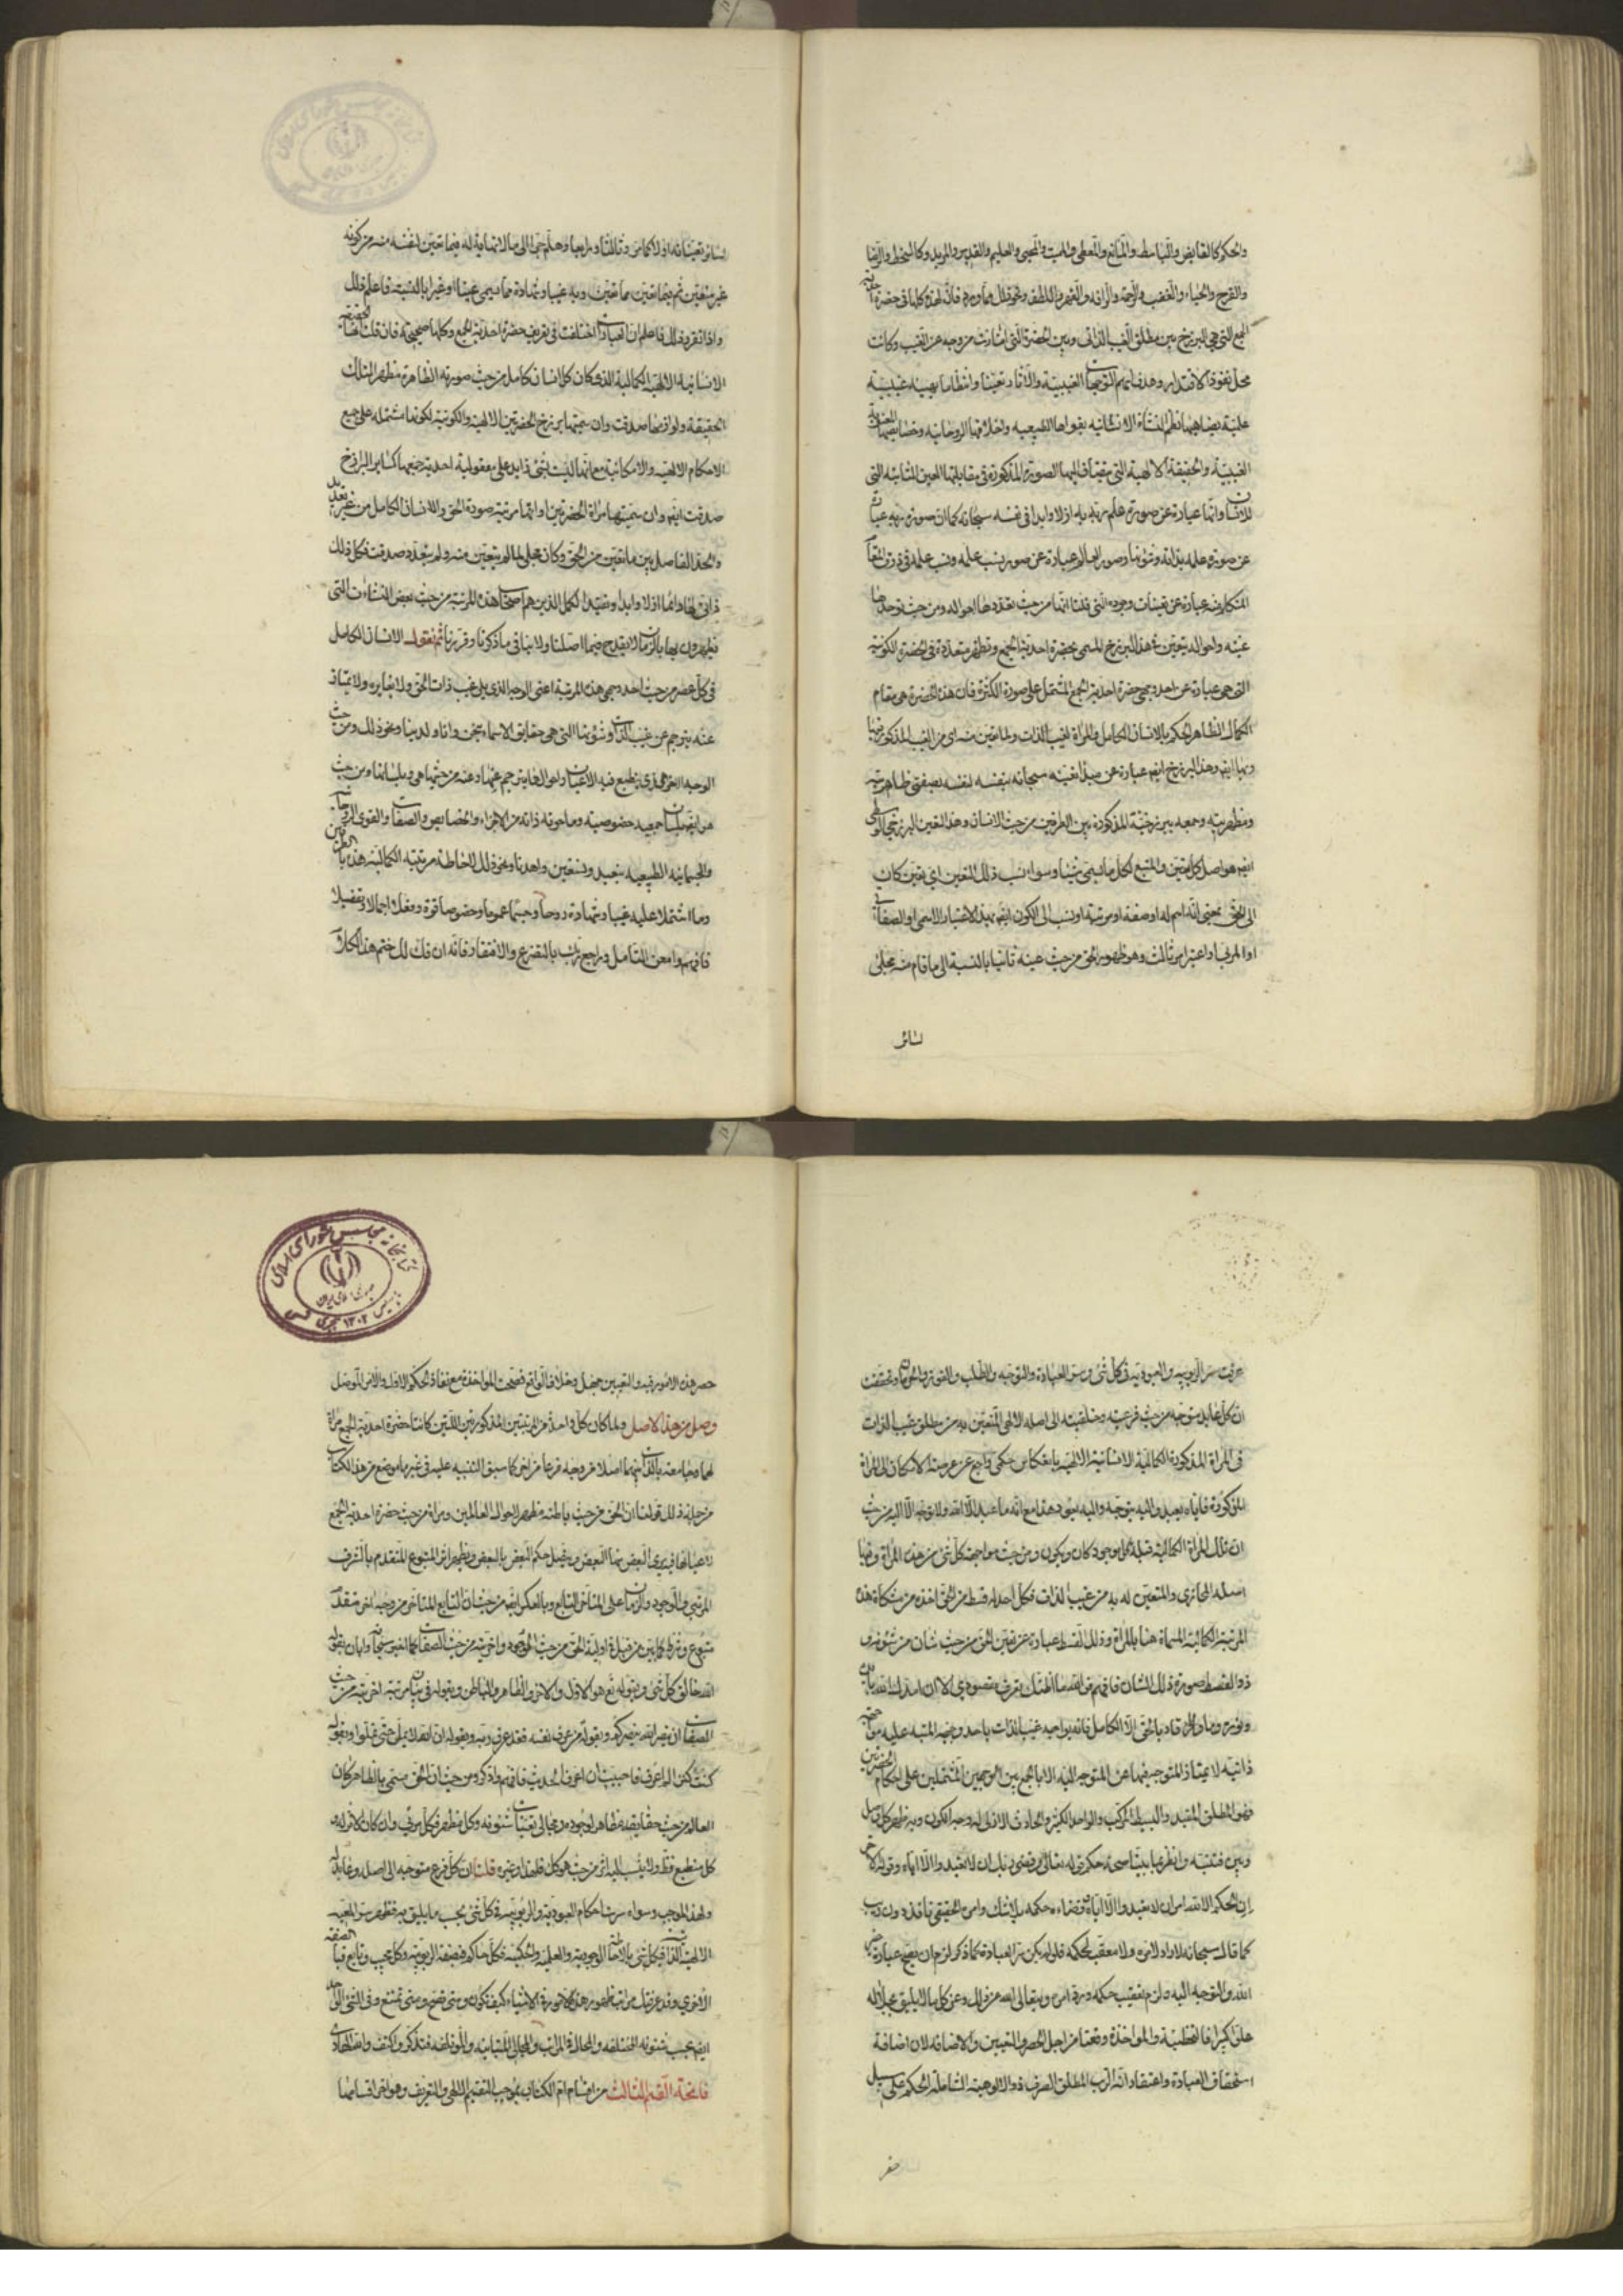 والحكم كالقابض والباسط والمانع والمعطى والمميت والمحيى والعليم والقدير والمريد وكالسخط والرضا
والفرح والحياء والغضب والرحمة والرافة والقهر واللطف ونحو ذلك مما ورد فان لهذه كلها فى حضرة
الجمع التى هى البرزخ بين مطلق الغيب الذاتى وبين الحضرة التى امتازت من وجه عن الغيب وكانت
محل نفوذ الاقتدار وهدفا لهم التوجهات الغيبية والآثار تعينا وانتظاما بهيئة غيبية
علمية يضاهيها نظم النشأة الانسانية بقواها الطبيعية واخلاقها الروحانية وخصايصها المعنوية
الغيبية والحقيقة الالهية التى يضاف اليها الصورة المذكورة فى مقابلتها العين الثابتة التى
للانسان وانها عبارة عن صورة علم ربه به ازلا وابدا فى نفسه سبحانه كما ان صورة ربه عبارة
عن صورة علمه بذاته وشؤنها وصور العالم عبارة عن صور نسب علمه ونسب علمه فى ذوق المقام
المتكلم فيه عبارة عن تعينات وجوده التى قلنا انها من حيث تعددها احواله ومن حيث توحدها
عينه واحواله يتعين فى هذا البرزخ المسمى بحضرة احدية الجمع وتظهر متعددة فى الحضرة الكونية
التى هى عبارة عن احد وجهى حضرة احدية الجمع المشتمل على صورة الكثرة فان هذه الحضرة هى مقام
الكمال الظاهر الحكم بالانسان الكامل والمرآة لغيب الذات ولما تعين منه اى من الغيب المذكور فيها
وبها ايضا وهذا البرزخ ايضا عبارة عن مبدأ تعينه سبحانه بنفسه لنفسه بصفتى ظاهريته
ومظهريته وجمعه ببرزخيته المذكورة بين الطرفين من حيث الانسان وهذا التعين البرزخى الوسطى
ايضا هو اصل كل تعين والمنبع لكل ما يسمى شيئا وسواء نسب ذلك التعين اى تعين كان
الى الحق بمعنى انه اسم له او صفة او مرتبة او نسب الى الكون ايضا بهذا الاعتبار الاسمى او الصفاتى
او المرتبى او اعتبر امر ثالث وهو ظهور الحق من حيث عينه ثانيا بالنسبة الى ما قام منه مجلى
لسائر
لسائر تعيناته اولا كما مر وثالثا ورابعا وهلم جرا الى ما لا نهاية له فيما تعين لنفسه منه من كونه
غير متعين ثم بما تعين مما تعين وبه غيبا وشهادة مما يسمى عينا او غيرا بالنسبة فاعلم ذلك
واذا تقرر ذلك فاعلم ان العبارات اختلفت فى تعريف حضرة احدية الجمع وكلها صحيحة فان قلت انها الحقيقة
الانسانية الالهية الكمالية الذى كان كل انسان كامل من حيث صورته الظاهرة مظهرا لتلك
الحقيقة ولوازمها صدقت وان سميتها برزخ الحضرتين الالهية والكونية لكونها مشتملة على جميع
الاحكام الالهية والامكانية مع انها ليست بشئ زايد على معقولية احدية جمعها كساير البرازخ
صدقت ايضا وان سميتها مرآة الحضرتين او انها مرتبة صورة الحق والانسان الكامل من غير تعديد
والحد الفاصل بين ما تعين من الحق وكان مجلى لما لم يتعين منه ولم يتعدد صدقت فكل ذلك
ذاتى لها دائما ازلا وابدا وتقيد الكمل الذين هم اصحاب هذه المرتبة من حيث بعض النشاءات التى
يظهرون بها بالزمان لا يقدح فيما اصلنا ولا ينافى ما ذكرنا وقررنا ثم نقول الانسان الكامل
فى كل عصر من حيث احد وجهى هذه المرتبة اعنى الوجه الذى يلى غيب ذات الحق ولا يغايره ولا يمتاز
عنه يترجم عن غيب الذات وشؤنها التى هى حقايق الاسماء بنحن وانا ولدينا ونحو ذلك ومن حيث
الوجه الآخر الذى ينطبع فيه الاعيان واحوالها يترجم عنها وعنه من حيثها هى وبلسانها ومن حيث
هو ايضا بلسان جمعية خصوصيته وما حوته ذاته من الاجزاء والخصايص والصفات والقوى الروحانية
والجسمانية الطبيعية بنعبد ونستعين واهدنا ونحو ذلك لاحاطة مرتبته الكمالية هذه بالطرفين
وما اشتملا عليه غيبا وشهادة روحا وجسما عموما وخصوصا قوة وفعلا اجمالا وتفصيلا
فافهم وامعن التأمل وراجع ربك بالتضرع والافتقار فانه ان فك لك ختم هذا الكلام
عرفت سر الربوبية والعبودية فى كل شئ وسر العبادة والتوجه والطلب والفوز والحرمان وتحققت
ان كل عابد متوجه من حيث فرعيته وخلقيته الى اصله الالهى المتعين به من مطلق غيب الذات
فى المرآة المذكورة الكمالية الانسانية الالهية بانعكاس حكمى راجع عن عرصة الامكان الى المرآة
المذكورة فاياه يعبد واليه يتوجه واليه يعود هذا مع انه ما عبد الا الله ولا توجه الا اليه من حيث
ان تلك المرآة الكمالية قبلة كل موجود كان ويكون ومن حيث مواجهة كل شئ من هذه المرآة وفيها
اصله المحاذى والمتعين له به من غيب الذات فكل احد له قسط من الحق اخذه من مشكاة هذه
المرتبة الكمالية المسماة هنا بالمرآة وذلك القسط عبارة عن تعين الحق من حيث شان من شئونه و
ذو القسط صورة ذلك الشان فافهم فوالله ما اظنك تعرف مقصودى الا ان امدك الله بايده
ونوره وما من قاد بالحق الا الكامل فانه يواجه غيب الذات باحد وجهيه المنبه عليه مواجهة
ذاتية لا يمتاز المتوجه فيها عن المتوجه اليه الا بالجمع بين الوجهين المشتملين على احكام الحضرتين
فهو المطلق المقيد والبسيط المركب والواحد الكثير والحادث الازلى له وجد الكون وبه ظهر كل وصل
وبين فتنبه وانظر بما بينا سر حكم قوله تعالى وقضى ربك ان لا تعبدوا الا اياه وقوله الآخر
ان الحكم الا لله امر ان لا تعبدوا الا اياه وقضاؤه حكمه بلا شك وامره الحقيقى نافذ دون ريب
كما قال سبحانه لا راد لامره ولا معقب لحكمه فلو لم يكن سر العبادة كما ذكر لزم ان يصح عبادة غير
الله والتوجه اليه ولزم تعقيب حكمه ورد امره ويتعالى الله عن ذلك وعن كل ما لا يليق بجلاله
علوا كبيرا فالتخطئة والمؤاخذة وقعتا من اجل الحصر والتعيين والاضافة لان اضافة
استحقاق العبادة واعتقاد انه الرب المطلق الصرف ذو الالوهية الشاملة الحكم على سبيل
حصر
حصر هذه الامور فيه والتعيين جهل وخلاف الواقع فصحت المؤاخذة مع نفاذ الحكم الاول والامر المؤصل
وصل من هذا الاصل ولما كان كل واحد من المرتبتين المذكورتين اللتين كانتا حضرة احدية الجمع مرآة
لهما وجامعة بالذات بينهما اصلا من وجه فرعا من آخر كما سبق التنبيه عليه فى غير ما موضع من هذا الكتاب
من جملة ذلك قولنا ان الحق من حيث باطنه مظهر لاحوال العالمين ومرآة من حيث حضرة احدية الجمع
لاعيانها فيرى البعض منها البعض ويتصل حكم البعض بالبعض ويظهر اثر المتبوع المتقدم بالشرف
المرتبى والوجود والزمان على المتاخر التابع وبالعكس ايضا من حيث ان التابع المتاخر من وجه آخر متقدم
متبوع وشرط كما بين من قبل فى اولية الحق من حيث الوجود وآخريته من حيث الصفات كما اخبر سبحانه وابان بقوله
الله خالق كل شئ وبقوله تع هو الاول والآخر والظاهر والباطن وبقوله فى بيان مرتبة آخريته من حيث
الصفات ان تنصروا الله ينصركم وبقوله من عرف نفسه فقد عرف ربه وبقوله ان الله لا يمل حتى تملوا وبقوله
كنت كنزا لم اعرف فاحببت ان اعرف الحديث فافهم واذكر ومن حيث ان الحق مسمى بالظاهر كان
العالم من حيث حقايقه مظاهر لوجوده ومجالى تعينات شئونه وكل مظهر فكل مرئى وان كان الاثر له و
كل منطبع فظاهر ولا ينسب اليه اثر من حيث هو كذلك فلهذا وغيره قلت ان كل فرع متوجه الى اصله وعابد له
ولهذا الموجب وسواه سرت احكام العبودية والربوبية فى كل شئ بحسب ما يليق به فظهر سر المعية
الالهية الذاتية فى كل شئ بالاحاطة الوجودية والعلمية والحكمية فكل حاكم فبصفة الربوبية وكل مجيب وتابع فبالصفة
الاخرى وقد عرفتك مراتب ظهور هذه الامور فى الاشياء كيف تكون ومتى تصح ومتى تمتنع وفى الشئ الواحد
ايضا بحسب شئونه المختلفة والمحال والمراتب والمجالى المتباينة والمؤتلفة فتذكر واكتف والله الهادى
فاتحة القسم الثالث من اقسام ام الكتاب بموجب التقسيم الالهى والتعريف وهو آخر اقسامها
كتابخانه مجلس شورای اسلامی